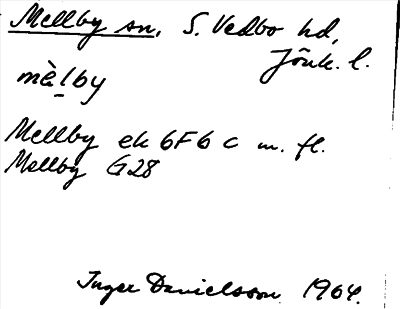 Mellby sn, S. Vedbo hd,
Jönk. l.
mè̱lby
Mellby ek 6F6c m. fl.
Mellby G28
Inger Danielsson 1964.